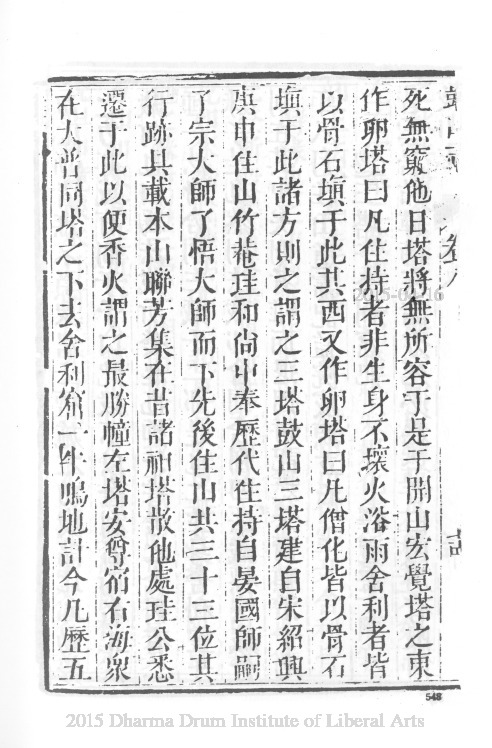 鼓山
卷八
死無窮他日塔將無所容于是于開山宏覺塔之東
作卵塔曰凡住持者非生身不壞火浴雨舍利者皆
以骨石塡于此其西又作卵塔曰凡僧化皆以骨石
塡于此諸方則之謂之三塔鼓山三塔建自宋紹興
庚申住山竹菴珪和尚中奉歷代住持自晏國師嗣
了宗大師了悟大師而下先後住山共三十三位其
行跡具載本山聯芳集在昔諸祖塔散他處珪公悉
遷于此以便香火謂之最勝幢左塔安尊宿右海衆
在大普同塔之下去舍利窟一牛鳴地計今凡歷五
548
2015 Dharma Drum Institute of Liberal Arts